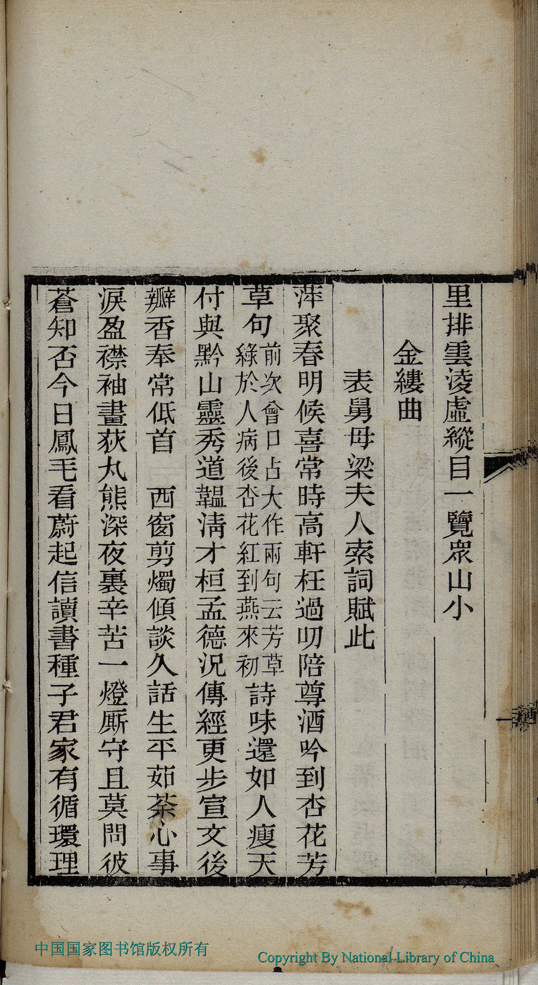 里排雲淩虛縱目一覽眾山小
金縷曲
表舅母梁夫人索詞賦此
萍聚春明候喜常時高軒枉過叨陪尊酒吟到杏花芳
草句前次曾口占大作兩句云芳草綠於人病後杏花紅到燕來初詩味還如人瘦天
付與黔山靈秀道韞清才桓孟德況傳經更步宣文後
瓣香奉常低首　西窗剪燭傾談久話生平茹荼心事
淚盈襟袖畫荻丸熊深夜裏辛苦一燈厮守且莫問彼
蒼知否今日鳳毛看蔚起信讀書種子君家有循環理
中国国家图书馆版权所有
Copyright By National Library of China